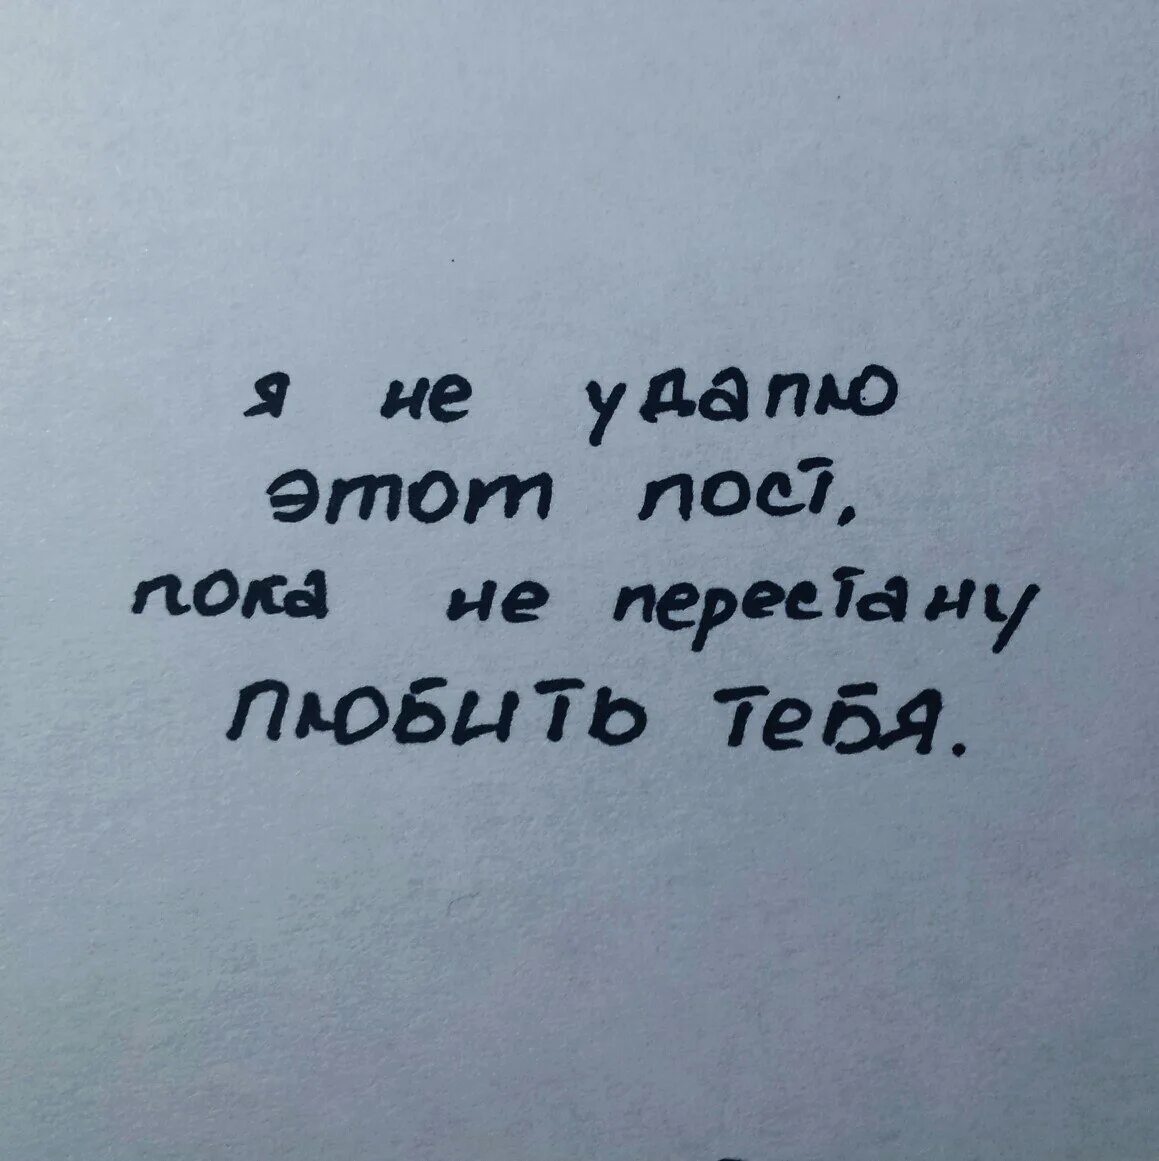 я не удалю
этот пост,
пока не перестану
любить тебя.